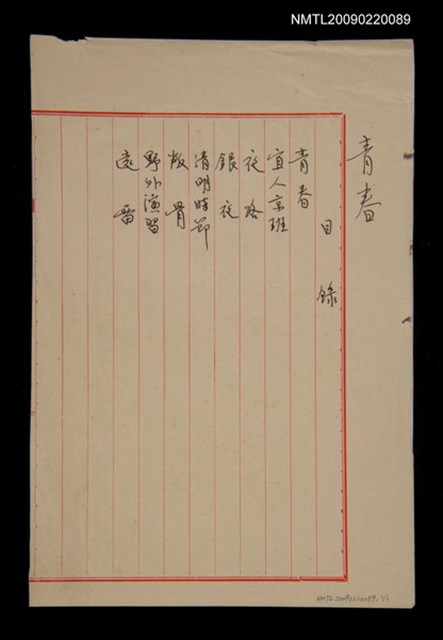 NMTL20090220089
青春
目錄
青春
宜人京班
夜路
銀夜
清明時節
叛骨
野外演習
遠雷
NMTL20090220089 1/1